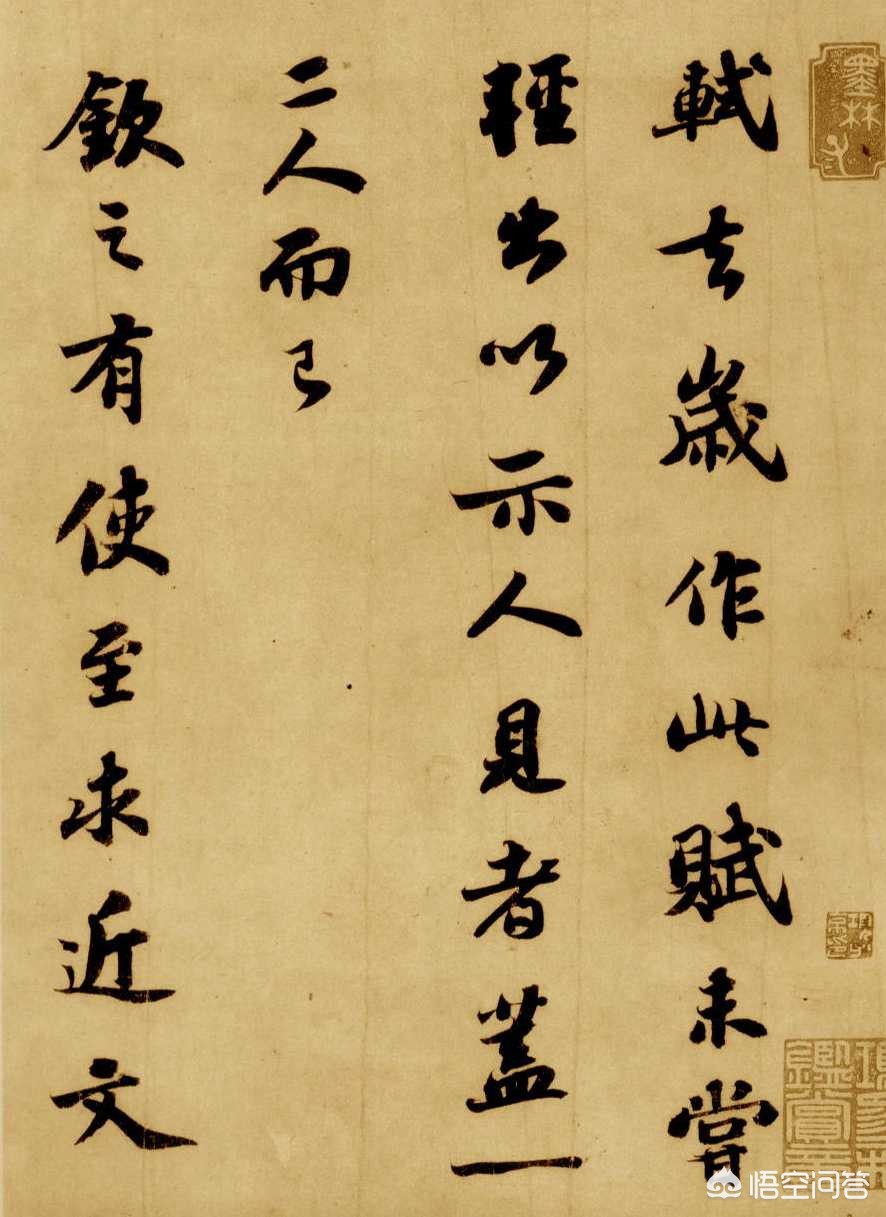 軾去歲作此賦未嘗
輕出以示人見者蓋一
二人而已
欽之有使至求近文
悟空问答